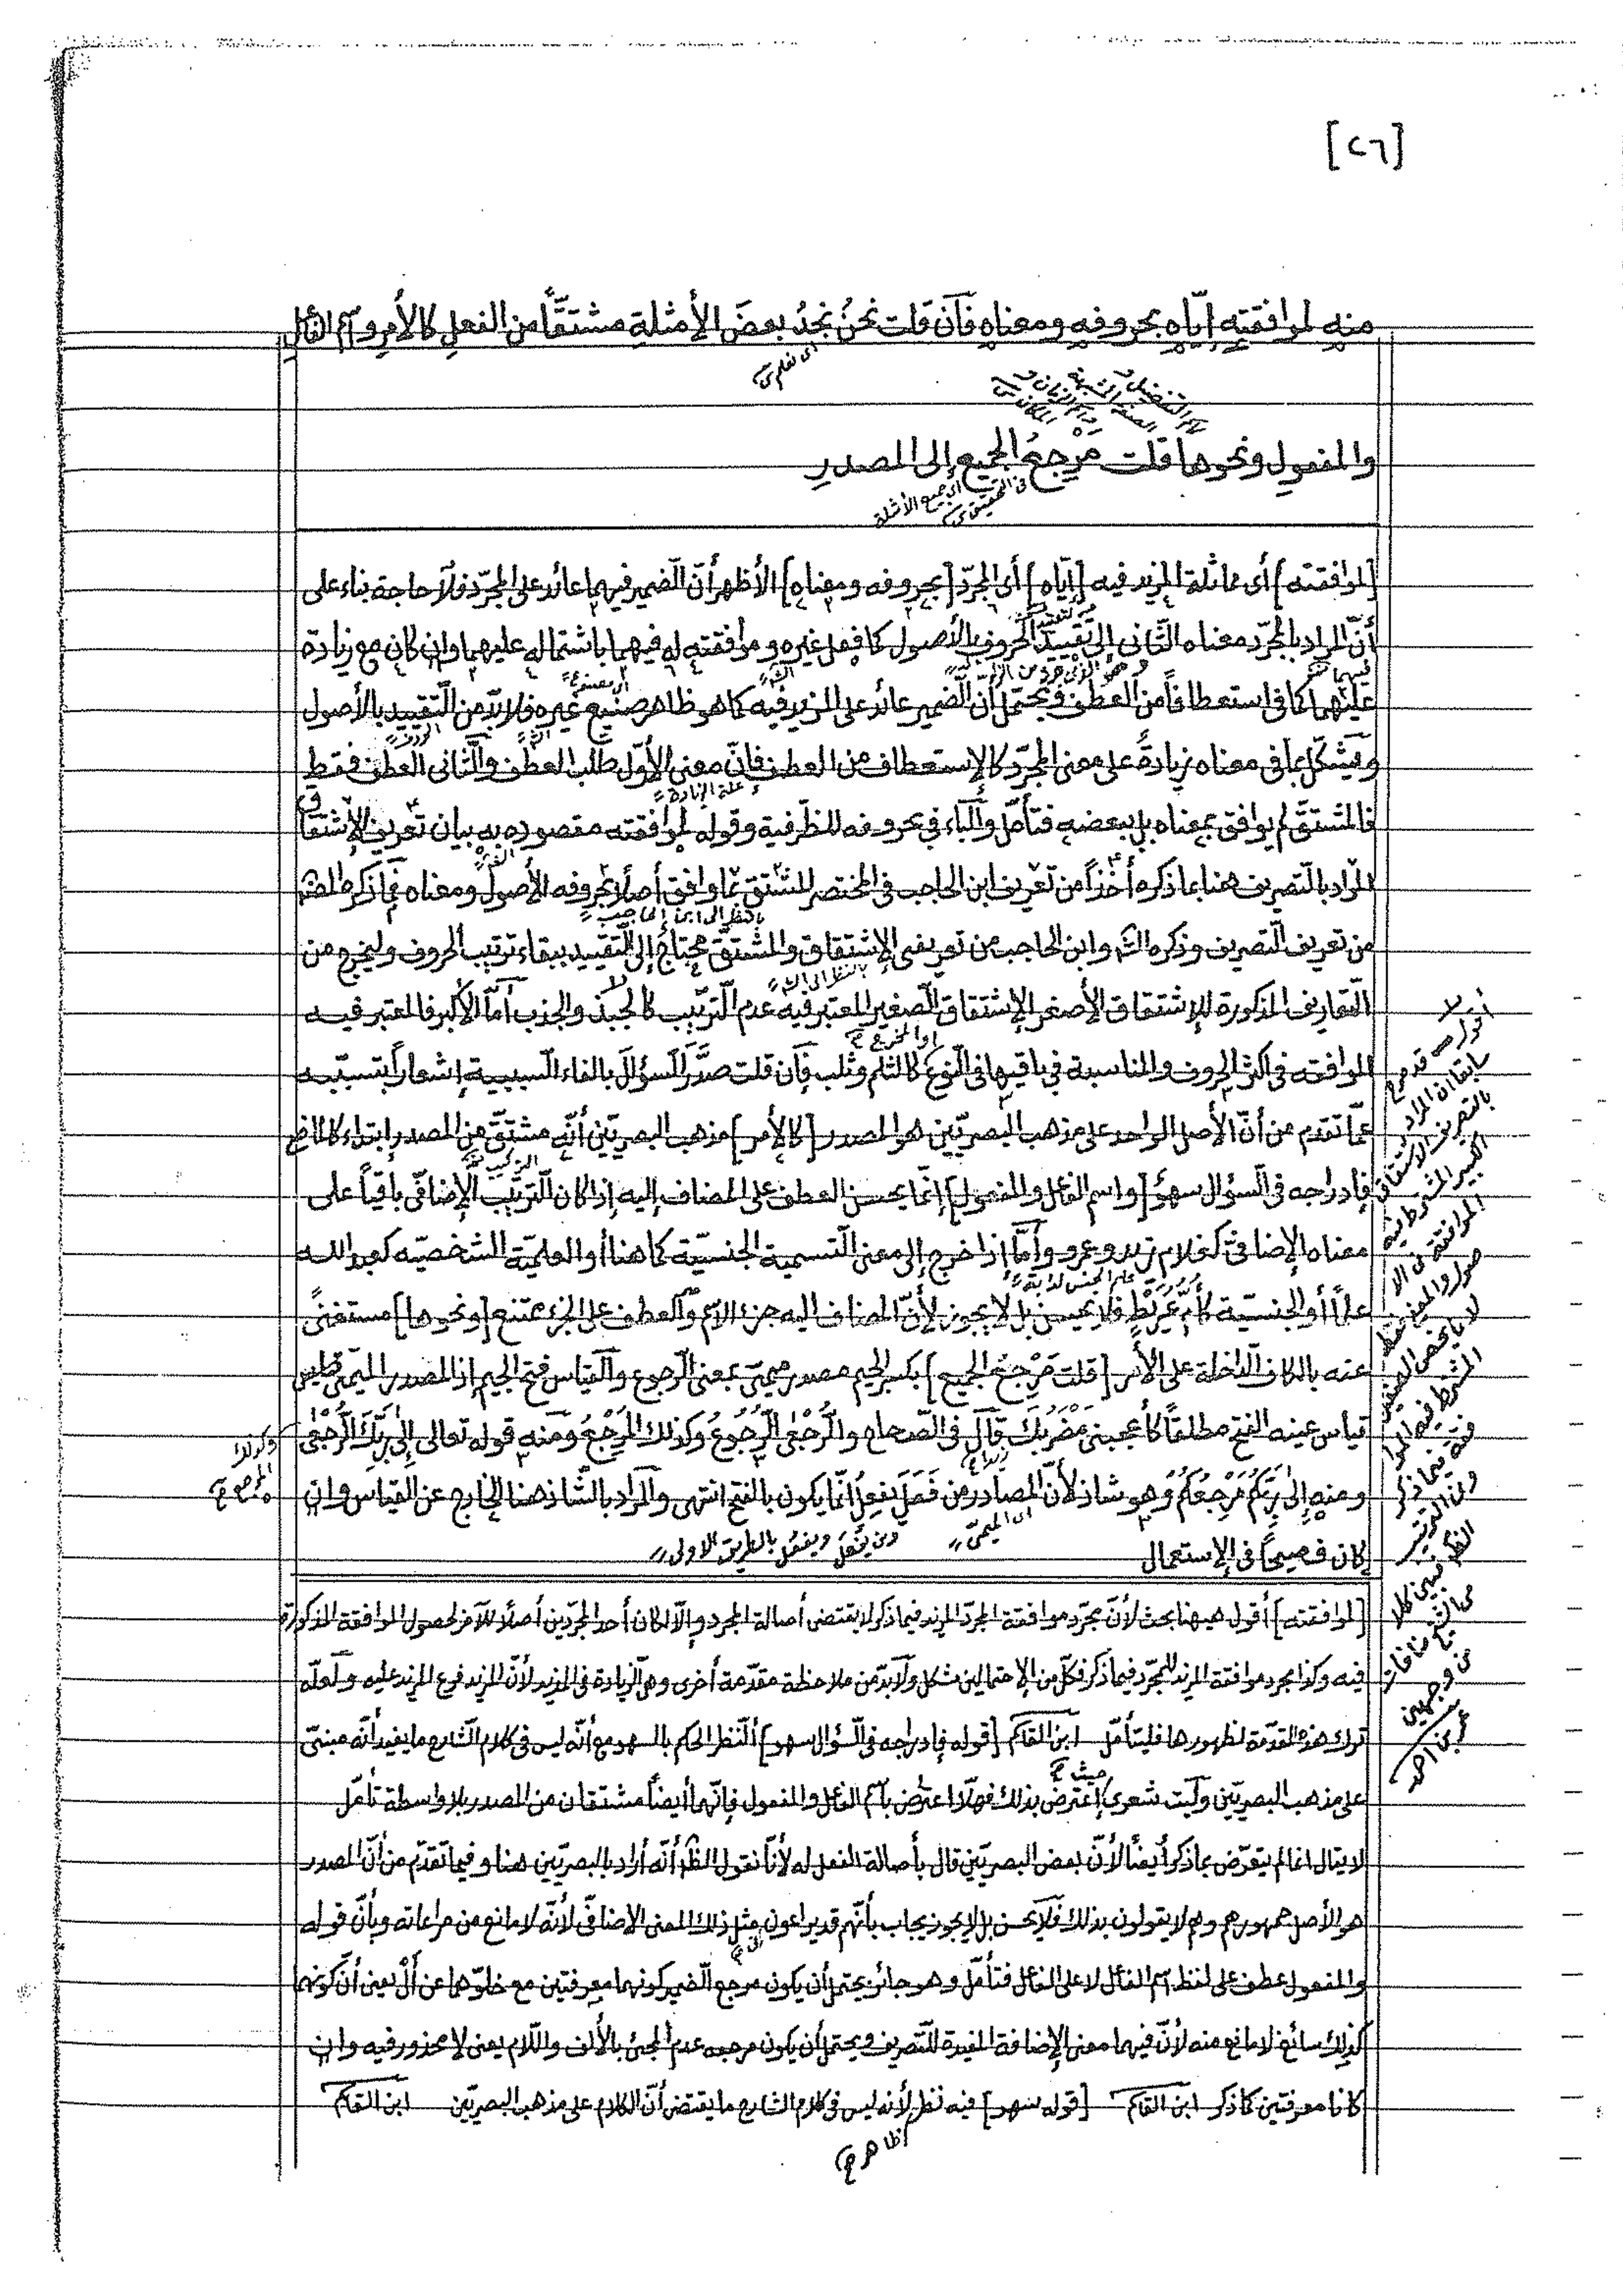 [٢٦]
منه لموافقته إيّاه بحروفه ومعناه فإن قلت نحنُ نجدُ بعضَ الأمثلةِ مشتقّاً من الفعلِ كالأمرِ واسم الفاعل
أى نعلم
والمفعولِ ونحوها قلت مَرْجِعُ الجميعِ إلى المصدرِ
أى جميع الأمثلة
[لموافقته] أى مماثلة المزيد فيه [إيّاه] أى المجرّد [بحروفه ومعناه] الأظهر أنّ الضمير فيهما عائد على المجرّد فلا حاجة بناء على
أنّ المراد بالمجرّد معناه الثّانى إلى تقييد الحروف بالأصول كما فعل غيره وموافقته له فيهما باشتماله عليهما وإن كان مع زيادة
عليهما كما فى استعطافاً من العطف ويحتمل أنّ الضمير عائد على المزيد فيه كما هو ظاهر صنيع غيره فلا بدّ من التّقييد بالأصول
ويشكل بما فى معناه زيادةٌ على معنى المجرّد كالإستعطاف من العطف فإنّ معنى الأوّل طلب العطف والثّانى العطف فقط
علة الزيادة
فالمشتقّ لم يوافق بمعناه بل ببعضه فتأمّل والباء فى بحروفه للظّرفية وقوله لموافقته مقصوده به بيان تعريف الإشتقاق
المراد بالتّصريف هنا بما ذكره أخذاً من تعريف ابن الحاجب فى المختصر للمشتقّ بما وافق أصلاً بحروفه الأصول ومعناه فما ذكره المصّ
بالنظر الى ابن الحاجب
من تعريف التّصريف وذكره الشّ وابن الحاجب من تعريفى الإشتقاق والمشتقّ محتاج إلى التّقييد ببقاء ترتيب الحروف وليخرج من
بالنظر الى الشّ
التّعاريف المذكورة للإشتقاق الأصغر الإشتقاق الصّغير المعتبر فيه عدم التّرتيب كالجبذ والجذب أمّا الأكبر فالمعتبر فيه
او المخرج
الموافقة فى أكثر الحروف والمناسبة فى باقيها فى النّوع كالثلم وثلب فإن قلت صدَّر السّؤال بالفاء السّببية إشعاراً بتسبّبه
عمّا تقدم من أنّ الأصل الواحد على مذهب البصريّين هو المصدر [كالأمر] مذهب البصريّين أنّه مشتقّ من المصدر إبتداء كالماضى
التركيب
فإدراجه فى السّؤال سهوٌ [واسم الفاعل والمفعول] إنّما يحسن العطف على المضاف إليه إذا كان التّرتيب الإضافىّ باقياً على
معناه الإضافىّ كغلام زيد وعمرو وأمّا إذا خرج إلى معنى التّسمية الجنسيّة كما هنا أو العلميّة الشخصيّه كعبد الله
علم الجنس لدابة
علماً أو الجنسيّة كأمّ عِرْيَطٍ فلا يحسن بل لا يجوز لأنّ المضاف اليه جزء الاسم والعطف على الجزء ممتنع [ونحوها] مستغنىً
عنه بالكاف الدّاخلة على الأمر [قلت مَرْجِعُ الجميع] بكسر الجيم مصدر ميمىّ بمعنى الرّجوع والقياس فتح الجيم إذ المصدر الميمىّ قياس
قياس عينه الفتح مطلقاً كأعجبنى مَضْرَبُكَ قال فى الصّحاح والرُّجْعَى الرُّجُوعُ وكذلك المَرْجِعُ ومنه قوله تعالى إلى رَبِّكَ الرُّجْعَى
وكذلك المرجع
ومنه إلى رَبِّكُمْ مَرْجِعُكُمْ وهو شاذ لأنّ المصادر من فَعَلَ يفعِلُ إنّما يكون بالفتح انتهى والمراد بالشّاذ هنا الخارج عن القياس وإن
كان فصيحاً فى الإستعمال
اى الميمىّ
ومن يَفْعَل ويفعُل بالطريق الاولى
[لموافقته] أقول هيهنا بحث لأنّ مجرّد موافقة المجرّد المزيد فيما ذكر لا يقتضى أصالة المجرد وإلّا لكان أحد المجرّدين أصلاً للآخر لحصول الموافقة المذكورة
فيه وكذا مجرد موافقة المزيد للمجرّد فيما ذكر فكلّ من الإحتمالين مشكل ولا بدّ من ملاحظة مقدّمة أخرى وهى الزّيادة فى المزيد لأنّ المزيد فرع المزيد عليه ولعلّه
ترك هذه المقدّمة لظهورها فليتأمّل ابن القاسم [قوله فإدراجه فى السّؤال سهو] النّظر الحكم بالسهو مع أنّه ليس فى كلام الشّارح ما يفيد أنّه مبنىّ
حيث
على مذهب البصريّين وليت شعرى إعترض بذلك فهلّا اعترض باسم الفاعل والمفعول فإنّهما أيضاً مشتقان من المصدر بلا واسطة تأمّل
لا يقال انما لم يتعرّض بما ذكر أيضاً لأنّ بعض البصريّين قال بأصالة الفعل له لأنّا نقول الظّ أنّه أراد بالبصريّين هنا وفيما تقدّم من أنّ المصدر
هو الأصل جمهورهم وهم لا يقولون بذلك فلا يحسن بل لا يجوز يجاب بأنّهم قد يراعون مثل ذلك المعنى الإضافىّ لأنّه لا مانع من مراعاته وبأنّ قوله
والمفعول عطف على لفظ اسم الفاعل لا على الفاعل فتأمّل وهو جائز يحتمل أن يكون مرجع الضمير كونهما معرفتين مع خلوّهما عن ألْ يعنى أن كونهما
كذلك سائغ لا مانع منه لأنّ فيهما معنى الإضافة المفيدة للتّعريف ويحتمل أن يكون مرجعه عدم المجئ بالألف واللّام يعنى لا محذور فيه وإن
كانا معرفتين كما ذكر ابن القاسم [قوله سهو] فيه نظر لأنه ليس فى كلام الشارح ما يقتضى أنّ الكلام على مذهب البصريّين ابن القاسم
ظاهر
أقول قد مرّ
سابقا ان المراد
بالتصريف الاشتقاق
الكبير المشروط فيه
الموافقة فى الا
صول والمعنى فقط